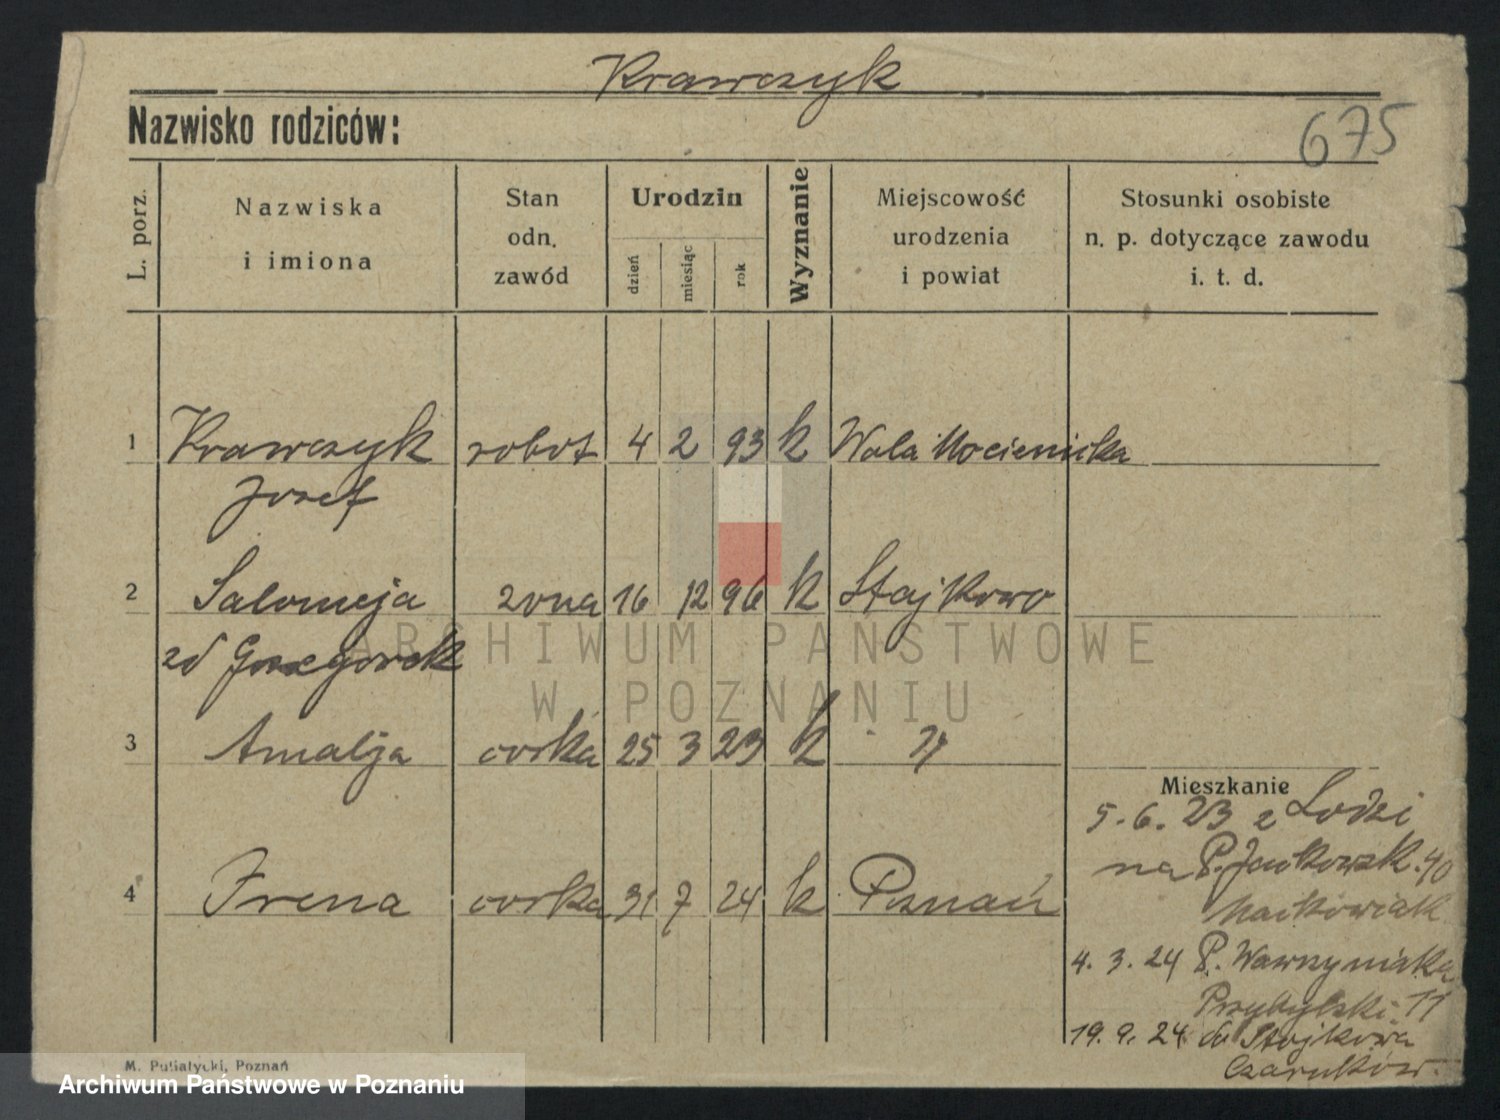 Krawczyk
Nazwisko rodziców:
675
L. porz.
Nazwiska
i imiona
Stan
odn.
zawód
Urodzin
dzień
miesiąc
rok
Wyznanie
Miejscowość
urodzenia
i powiat
Stosunki osobiste
n. p. dotyczące zawodu
i. t. d.
1 Krawczyk robot 4 2 93 k Wola
Jozef
2 Salomeja zona 16 12 96 k Stajkowo
zd Grzegorek
3 Amalja corka 25 3 23 k
4 Irena corka 31 7 24 k Poznań
Mieszkanie
5.6.23 z Lodzi
na P. 40
4.3.24 P. Wawrzyniaka
Przybylski 11
19.9.24 do Stajkowa
Czarnków.
M. Putiatycki, Poznań
ARCHIWUM PAŃSTWOWE
W POZNANIU
Archiwum Państwowe w Poznaniu